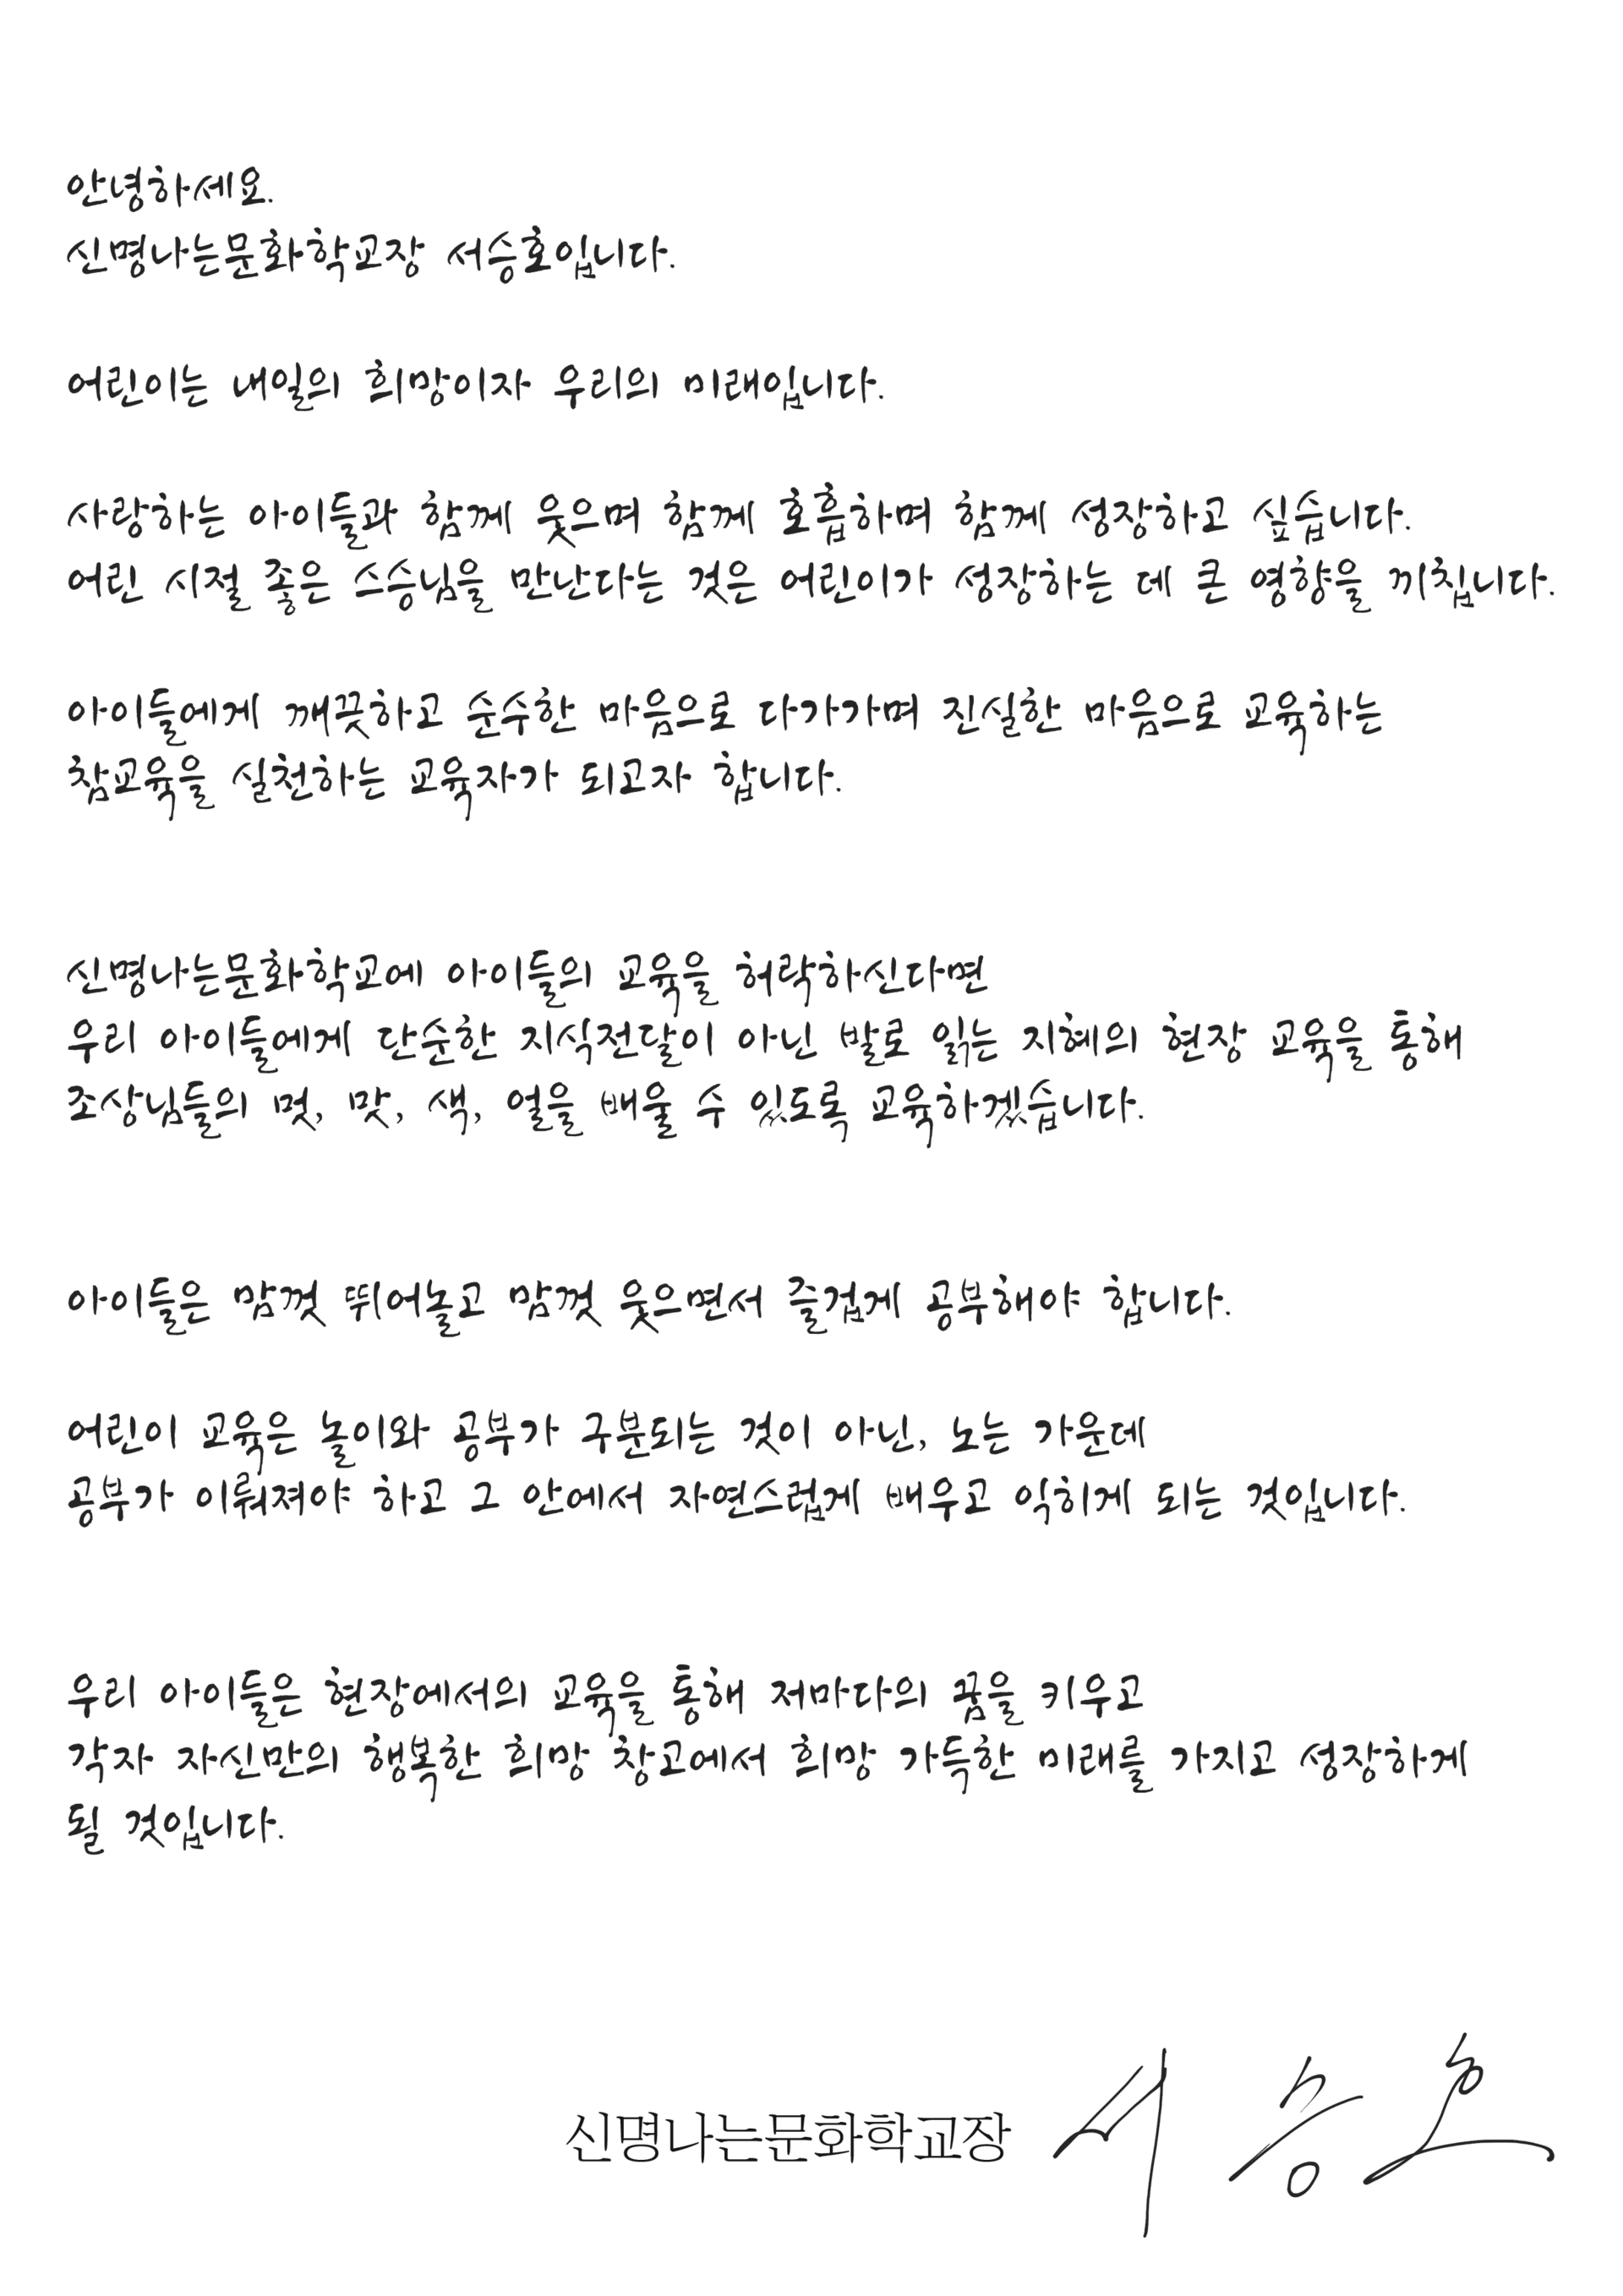 안녕하세요.
신명나는문화학교장 서승호입니다.
어린이는 내일의 희망이자 우리의 미래입니다.
사랑하는 아이들과 함께 웃으며 함께 호흡하며 함께 성장하고 싶습니다.
어린 시절 좋은 스승님을 만난다는 것은 어린이가 성장하는 데 큰 영향을 끼칩니다.
아이들에게 깨끗하고 순수한 마음으로 다가가며 진실한 마음으로 교육하는
참교육을 실천하는 교육자가 되고자 합니다.
신명나는문화학교에 아이들의 교육을 허락하신다면
우리 아이들에게 단순한 지식전달이 아닌 발로 읽는 지혜의 현장 교육을 통해
조상님들의 멋, 맛, 색, 얼을 배울 수 있도록 교육하겠습니다.
아이들은 맘껏 뛰어놀고 맘껏 웃으면서 즐겁게 공부해야 합니다.
어린이 교육은 놀이와 공부가 구분되는 것이 아닌, 노는 가운데
공부가 이뤄져야 하고 그 안에서 자연스럽게 배우고 익히게 되는 것입니다.
우리 아이들은 현장에서의 교육을 통해 저마다의 꿈을 키우고
각자 자신만의 행복한 희망 창고에서 희망 가득한 미래를 가지고 성장하게
될 것입니다.
신명나는문화학교장 서승호